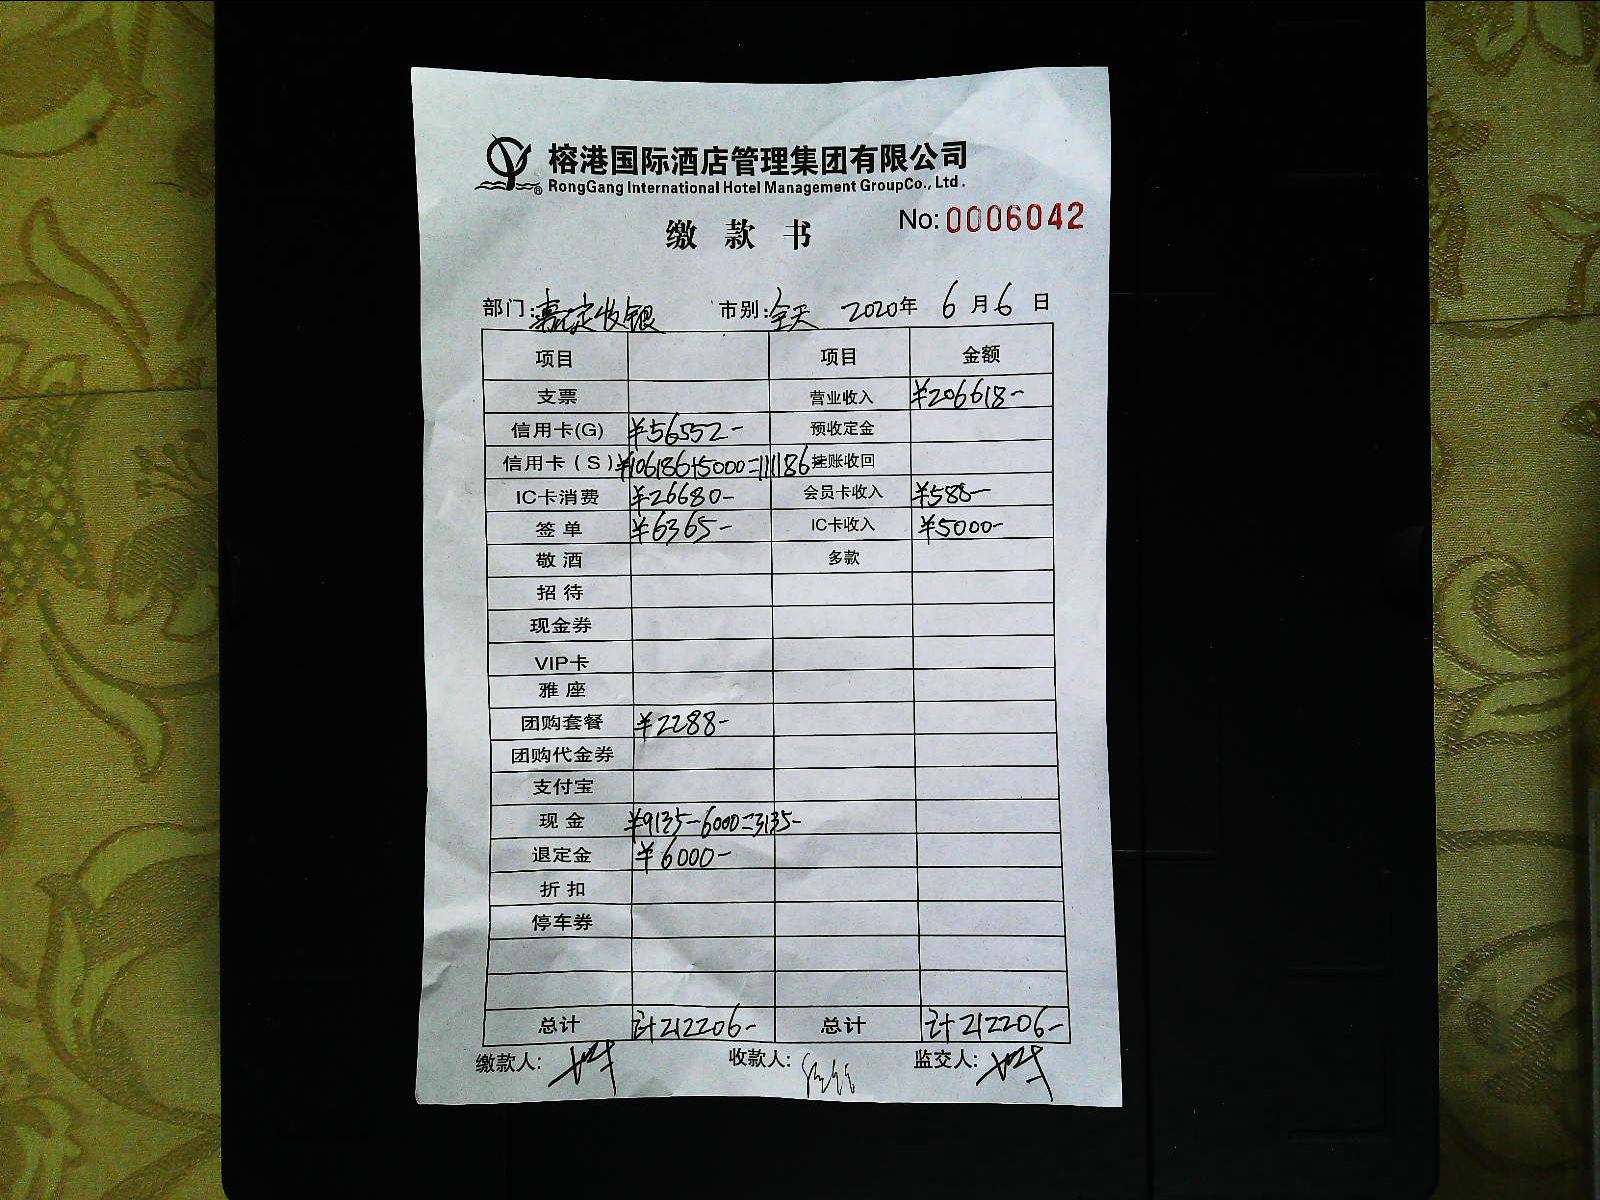 榕港国际酒店管理集团有限公司
RongGang International Hotel Management GroupCo., Ltd.
缴款书 No:0006042
部门:嘉定收银 市别:全天 2020年 6月6日
项目 项目 金额
支票 营业收入 ¥206618-
信用卡(G) ¥56552- 预收定金
信用卡(S) ¥106186+5000=111186 挂账收回
IC卡消费 ¥26680- 会员卡收入 ¥588-
签单 ¥6365- IC卡收入 ¥5000-
敬酒 多款
招待
现金券
VIP卡
雅座
团购套餐 ¥2288-
团购代金券
支付宝
现金 ¥9135-6000=3135-
退定金 ¥6000-
折扣
停车券
总计 计212206- 总计 计212206-
缴款人: 收款人: 监交人: